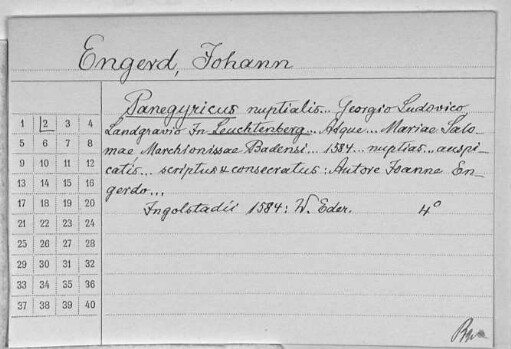 Engerd, Johann
Panegyricus nuptialis... Georgio Ludovico
Landgravio In Leuchtenberg... Atque... Mariae Salo-
mae Marchionissae Badensi... 1584... nuptias... auspi-
catis... scriptus & consecratus: Autore Ioanne En-
gerdo...
Ingolstadii 1584: W. Eder. 4°
1 2 3 4
5 6 7 8
9 10 11 12
13 14 15 16
17 18 19 20
21 22 23 24
25 26 27 28
29 30 31 32
33 34 35 36
37 38 39 40